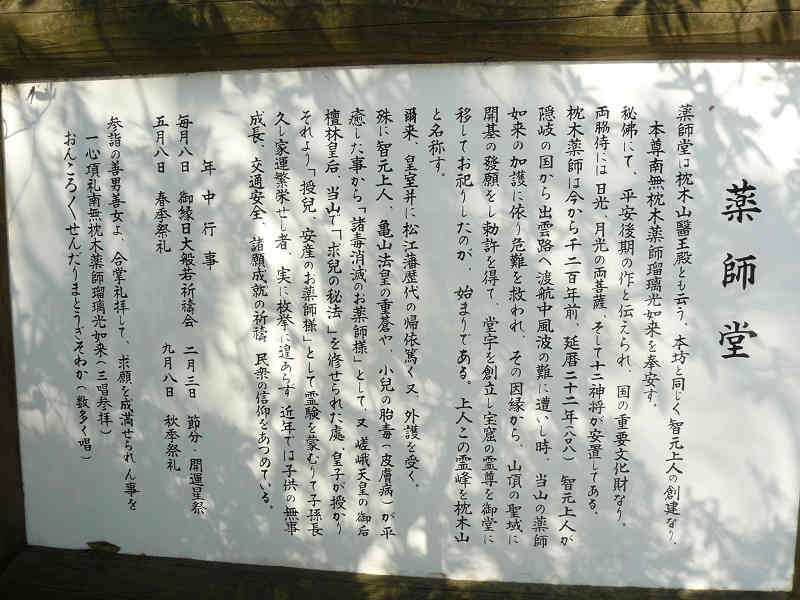 薬師堂
薬師堂は枕木山醫王殿とも云う、本坊と同じく智元上人の創建なり、
本尊南無枕木薬師瑠璃光如来を奉安す。
秘佛にて、平安後期の作と伝えられ、国の重要文化財なり。
両脇侍には日光、月光の両菩薩、そして十二神将が安置してある。
枕木薬師は今から千二百年前、延暦二十二年(八〇八)智元上人が
隠岐の国から出雲路へ渡航中風波の難に遭いし時、当山の薬師
如来の加護に依り危難を救われ、その因縁から、山頂の聖域に
開基の發願をし勅許を得て、堂宇を創立し宝窟の霊尊を御堂に
移してお祀りしたのが、始まりである。上人この霊峰を枕木山
と名称す。
爾来、皇室并に松江藩歴代の帰依篤く又、外護を受く。
殊に智元上人、亀山法皇の重蒼や、小児の胎毒(皮膚病)が平
癒した事から「諸毒消滅のお薬師様」として、又嵯峨天皇の御后
檀林皇后、当山で「求兒の秘法」を修せられた處、皇子が授かり
それより「授兒、安産のお薬師様」として霊験を蒙むりて子孫長
久し家運繁栄せし者、実に枚挙に遑あらず近年では子供の無事
成長、交通安全、諸願成就の祈禱民衆の信仰をあつめている。
年中行事
毎月八日 御縁日大般若祈禱会 二月三日 節分・開運星祭
五月八日 春季祭礼 九月八日 秋季祭礼
参詣の善男善女よ、合掌礼拝して、求願を成満せられん事を
一心頂礼南無枕木薬師瑠璃光如来(三唱参拝)
おんころ〱せんだりまとうぎそわか(数多く唱)